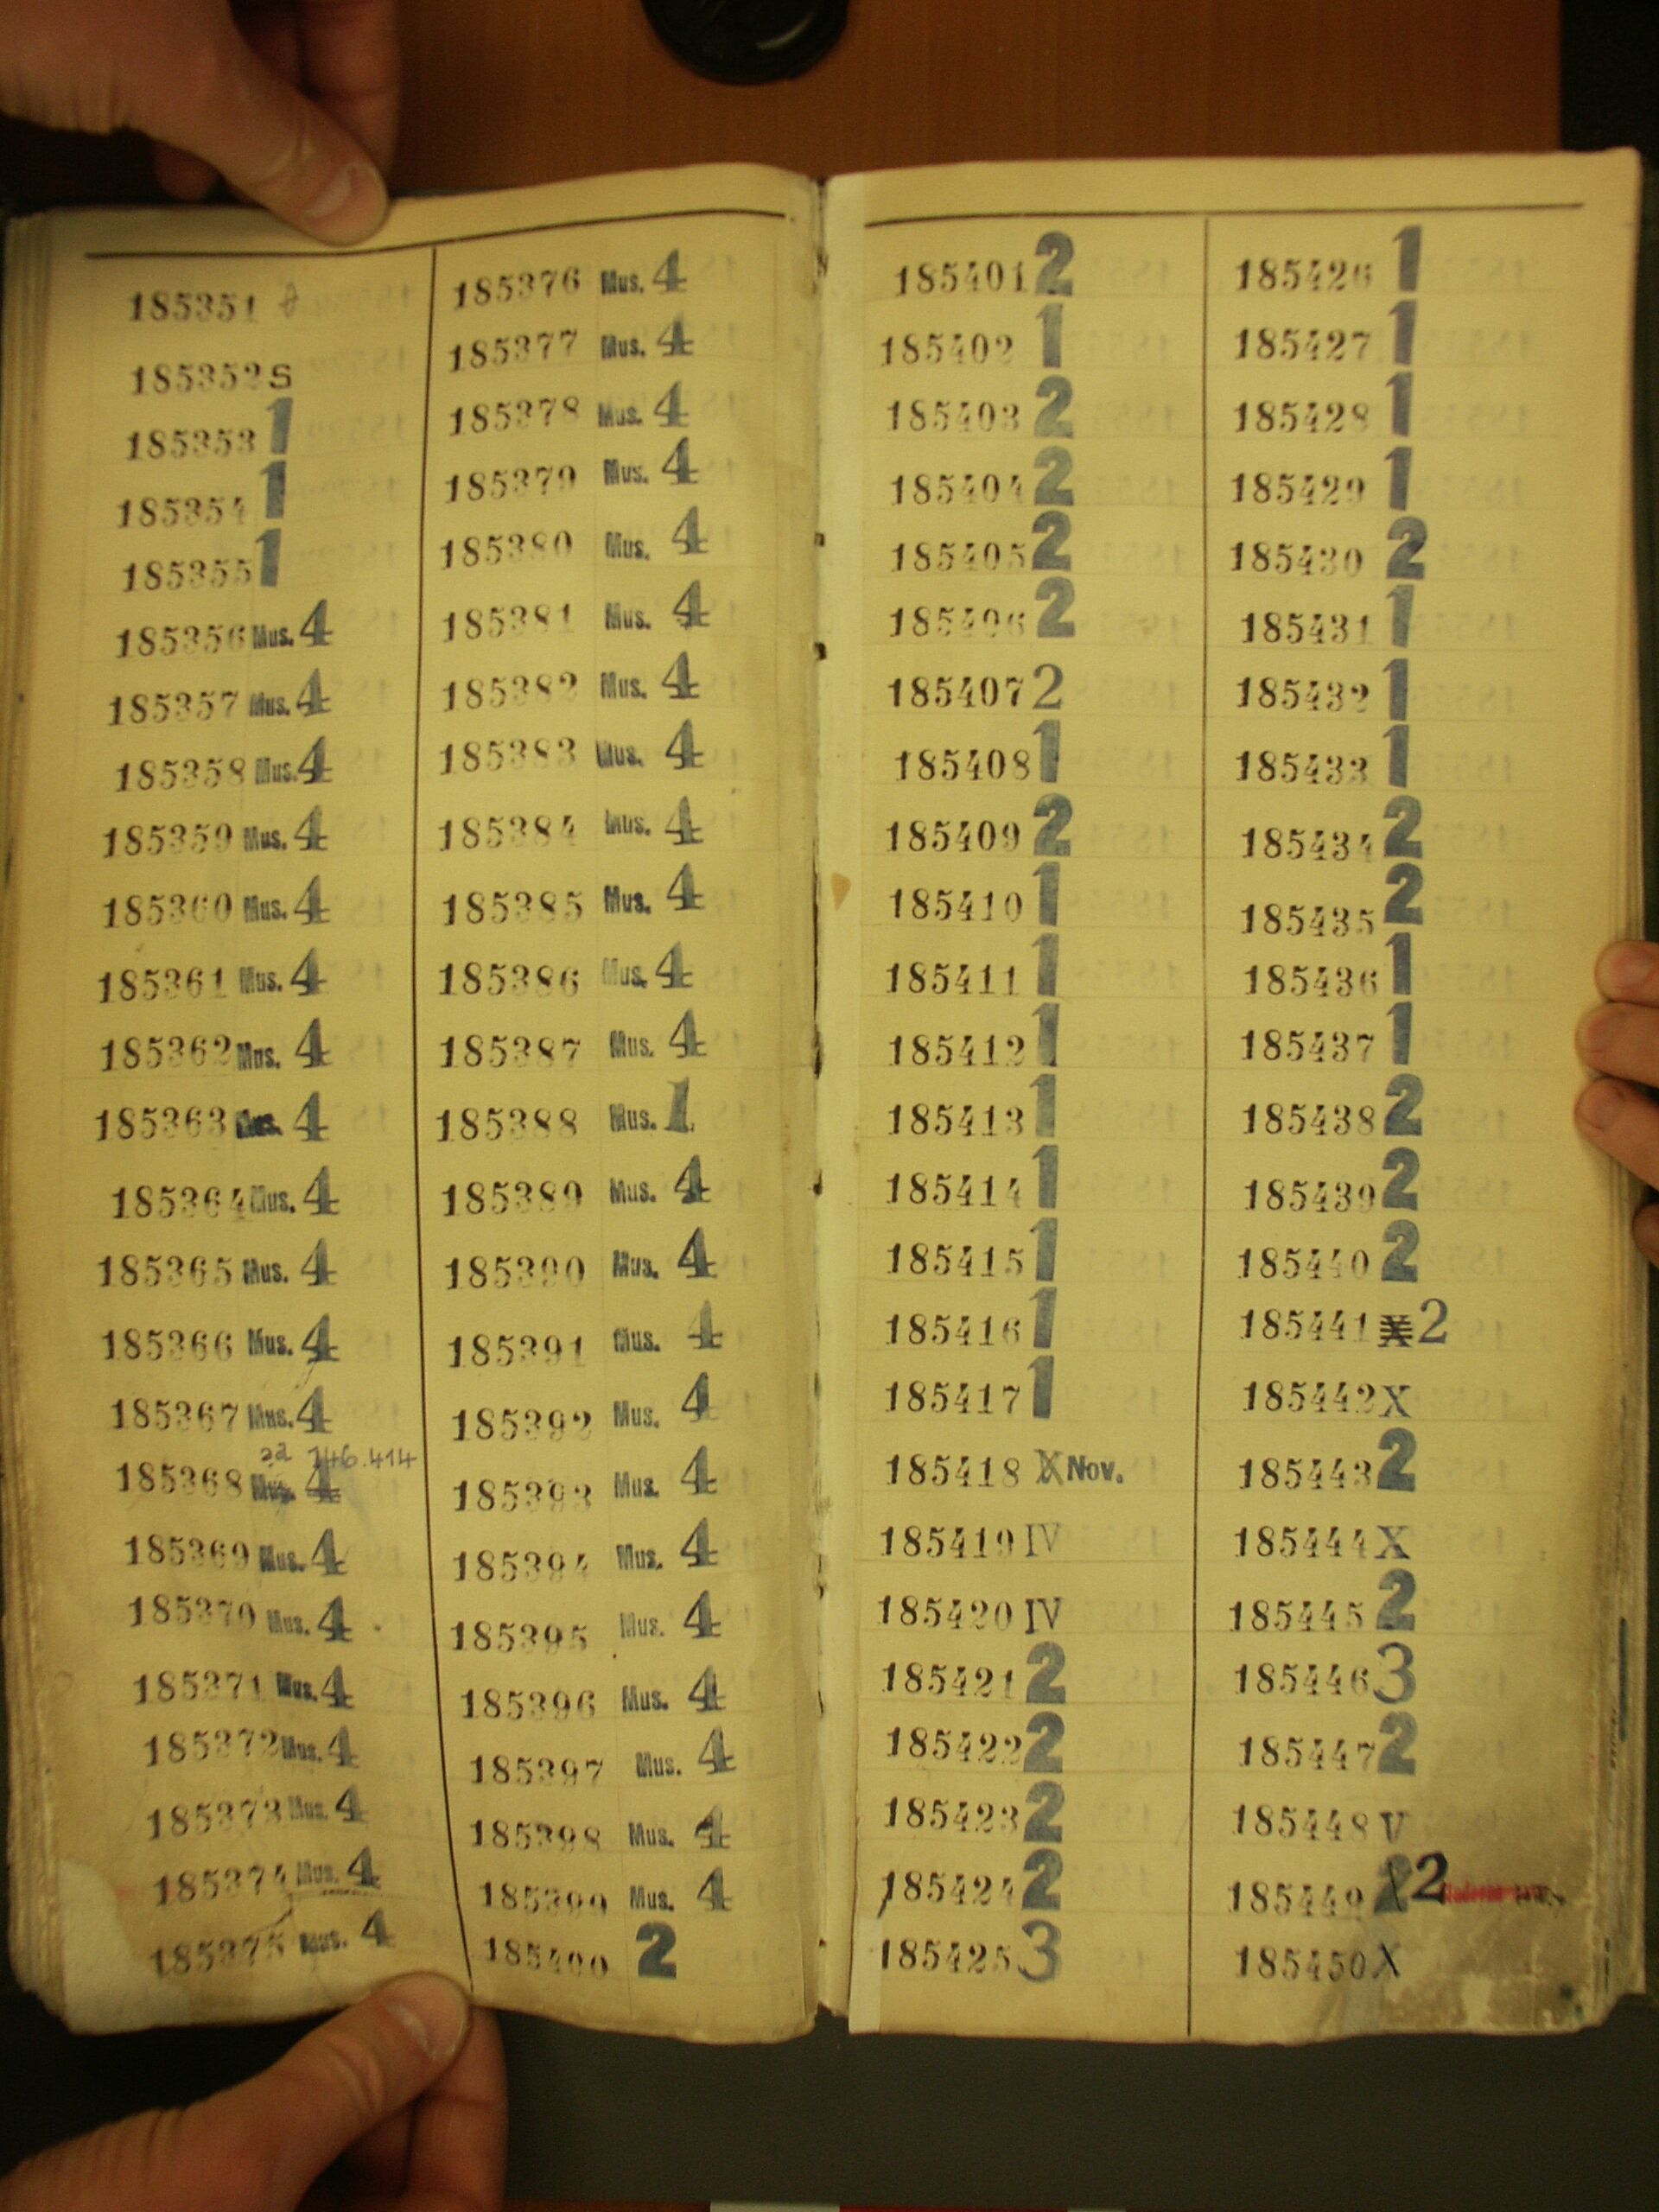 185351
185352 S
185353 1
185354 1
185355 1
185356 Mus. 4
185357 Mus. 4
185358 Mus. 4
185359 Mus. 4
185360 Mus. 4
185361 Mus. 4
185362 Mus. 4
185363 Mus. 4
185364 Mus. 4
185365 Mus. 4
185366 Mus. 4
185367 Mus. 4
za 146.414
185368 Mus. 4
185369 Mus. 4
185370 Mus. 4
185371 Mus. 4
185372 Mus. 4
185373 Mus. 4
185374 Mus. 4
185375 Mus. 4
185376 Mus. 4
185377 Mus. 4
185378 Mus. 4
185379 Mus. 4
185380 Mus. 4
185381 Mus. 4
185382 Mus. 4
185383 Mus. 4
185384 Mus. 4
185385 Mus. 4
185386 Mus. 4
185387 Mus. 4
185388 Mus. 1
185389 Mus. 4
185390 Mus. 4
185391 Mus. 4
185392 Mus. 4
185393 Mus. 4
185394 Mus. 4
185395 Mus. 4
185396 Mus. 4
185397 Mus. 4
185398 Mus. 4
185399 Mus. 4
185400 2
185401 2
185402 1
185403 2
185404 2
185405 2
185406 2
185407 2
185408 1
185409 2
185410 1
185411 1
185412 1
185413 1
185414 1
185415 1
185416 1
185417 1
185418 X Nov.
185419 IV
185420 IV
185421 2
185422 2
185423 2
185424 2
185425 3
185426 1
185427 1
185428 1
185429 1
185430 2
185431 1
185432 1
185433 1
185434 2
185435 2
185436 1
185437 1
185438 2
185439 2
185440 2
185441 X 2
185442 X
185443 2
185444 X
185445 2
185446 3
185447 2
185448 V
185449 2 2
185450 X